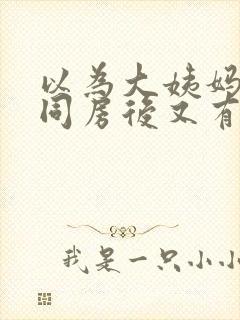 以為大姨妈
同房後又有
我是一只小小